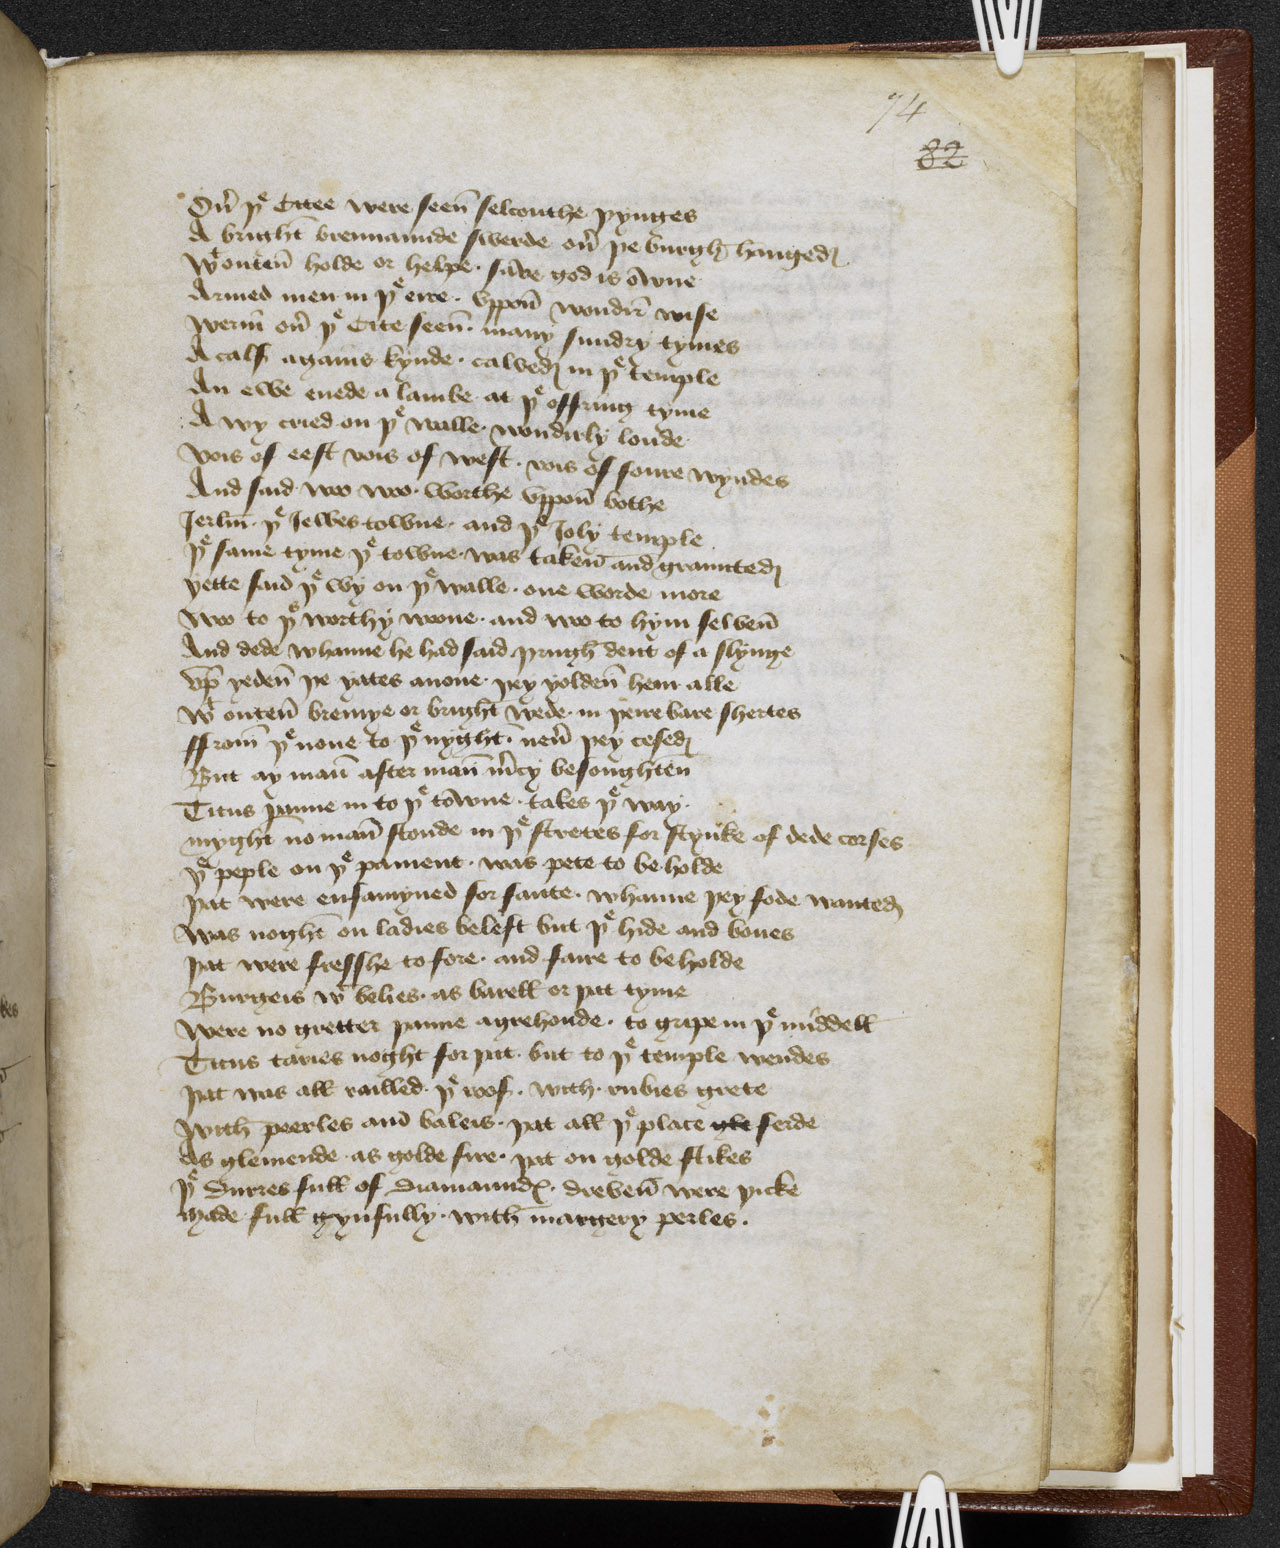 74
82
Ou͛ þͤ Citee were seen̄ selcouthe þynges
A bright brennannde swerde ou͛ þe burgh hanged
Wͭ outen̄ holde or helpe · save god is owne
Armed men in þͤ eire · vppon̄ wondir̄ wise
Wern̄ ou͛ þͤ Cite seen̄ · many sundry tymes
A calf agains kynde · calved in þͤ temple
An ewe enede a lambe at þͤ offring tyme
A wy cried on þͤ walle · wondirly loude
Vois of eest vois of west · vois of foure wyndes
And said woo woo · worthe vppon̄ bothe
Jerlm̄ · þͤ Jewes towne · and þͤ Joly temple
þͤ same tyme þͤ towne · was taken̄ and graunted
yette said þͤ wy on þͤ walle · one worde more
Woo to þͥˢ worthy wone · and wo to hym selven̄
And dede whanne he had said þrugh dent of a slynge
Vp̄ yeden̄ þe yates anone · þey yolden̄ hem alle
Wͭ outen̄ brenye or bright wede · in þeire bare shertes
ffrom̄ þͤ none to þͤ nyght · neu͛ þey cesed
But ay man̄ after man̄ m͛cy besoughten
Titus þanne in to þͤ towne · takes þͤ way ·
myght no man̄ stonde in þͤ stretes for stynke of dede corses
þͤ peple on þͤ pament · was pete to be holde
þat were enfamyned for faute · whanne þey fode wanted
Was noght on ladies beleft but þͤ hide and bones
þat were fresshe to fore · and faire to beholde
Burgeis wͭ belies · as barell or þat tyme
Were no gretter þanne agrehonde · to gripe in þͤ middell
Titus taries noght for þat · but to þͤ temple wendes
þat was all railled · þͤ roof · with · rubies grete
With peerles and baleis · þat all þͤ place gle ferde
As glemende · as golde fire · þat on golde stikes
þͤ Durres full of Diamaundes · dreven̄ were þicke
Made full gynfully · with margery perles ·